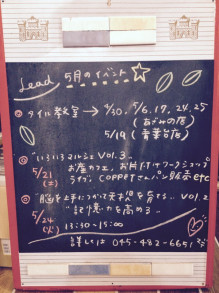 Lead 5月のイベント ☆
◎ タイル教室 → 4/30. 5/6.17.24.25
(あざみの店)
5/19 (青葉台店)
◎ "いろいろマルシェ VOL.3"
5/21 お座カフェ, お片付けワークショップ
(土) ライブ, COPPETさんパン販売 etc
◎ "脳を上手につかって元根を育てる" VOL.2
5/24 "記憶力を高める"
(火) 13:30~15:00
詳しくは 045-482-6651